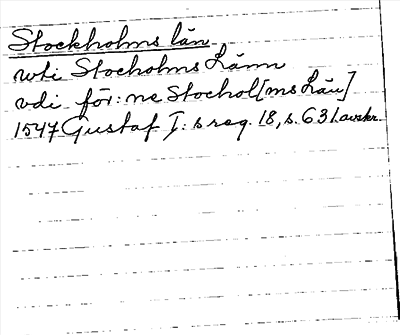 Stockholms län
wti Stocholms Länn
vdi för:ne Stochol[ms Län]
1547 Gustaf I:s reg. 18, s. 631 avskr.